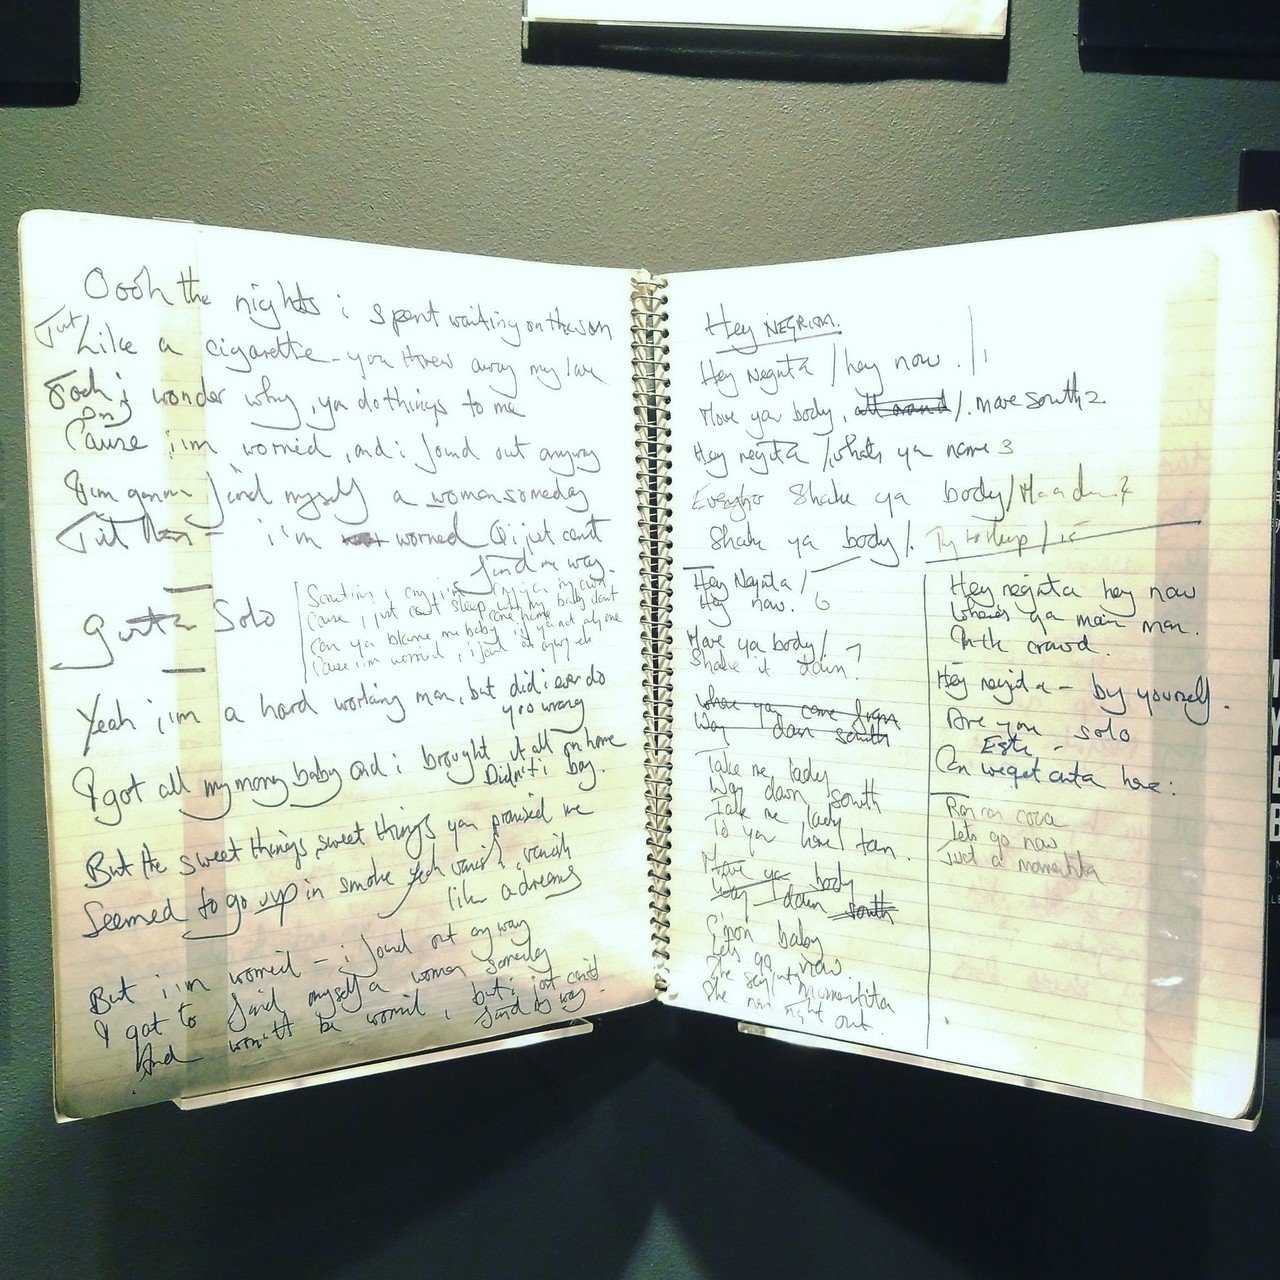 Oooh the nights i spent waiting on
Like a cigarette - you threw away my
wonder why, you do things to me
Cause i'm worried, and i found out anyway
I'm gonna find myself a woman someday
Till then - i'm worried & i just cant
find my way.
Solo
Cause i just cant sleep
Can ya blame me baby
Cause i'm worried, i
Yeah i'm a hard working man, but did i ever do
you wrong
I got all my money baby and i brought it all on home
Didn't i boy.
But the sweet things, sweet things you promised me
Seemed to go up in smoke yeah vanish, vanish
like a dreams
But i'm worried - i found out any way
I got to find myself a woman someday
And won't be worried, but i just can't
find my way.
Hey NEGRITA.
Hey Negrita / hey now. / 1
Move ya body, all around /. move south 2
Hey negrita / whats ya name 3
Shake ya body /
Shake ya body /.
Hey Negrita /
Hey now. 6
Move ya body /. 7
Shake it down.
where you come from
Way down south
Take me lady
Way down south
Take me lady
To you home town.
Move ya body
Way down south
C'mon baby
Lets go now.
She say momentita
She run right out.
Hey negrita hey now
Wheres ya main man.
crowd.
Hey negrita - by yourself.
Are you solo
Esta -
Can we get outa here:
coca
Lets go now
Just a momentita